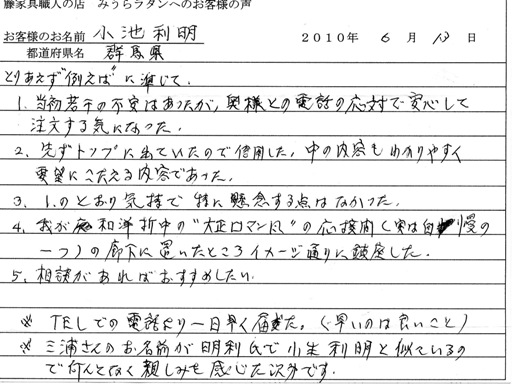 藤家具職人の店 みうらラタンへのお客様の声
お客様のお名前 小池利明 2010年 6月 13日
都道府県名 群馬県
とりあえず"例えば"に準じて.
1. 当初若干の不安はあったが、奥様との電話の応対で安心して
注文する気になった.
2. 先ずトップに出ていたので信用した. 中の内容もわかりやすく
要望にこたえる内容であった.
3. 1.のとおり気持で特に懸念する点はなかった.
4. 我が和洋折中の"大正ロマン風"の応接間(実は自慢の
一つ)の廊下に置いたところイメージ通りに鎮座した.
5. 相談があればおすすめしたい.
※ TELでの電話より一日早く届いた. (早いのは良いこと)
※ 三浦さんのお名前が明利氏で小生利明と似ているの
で何んとなく親しみを感じた次第です.